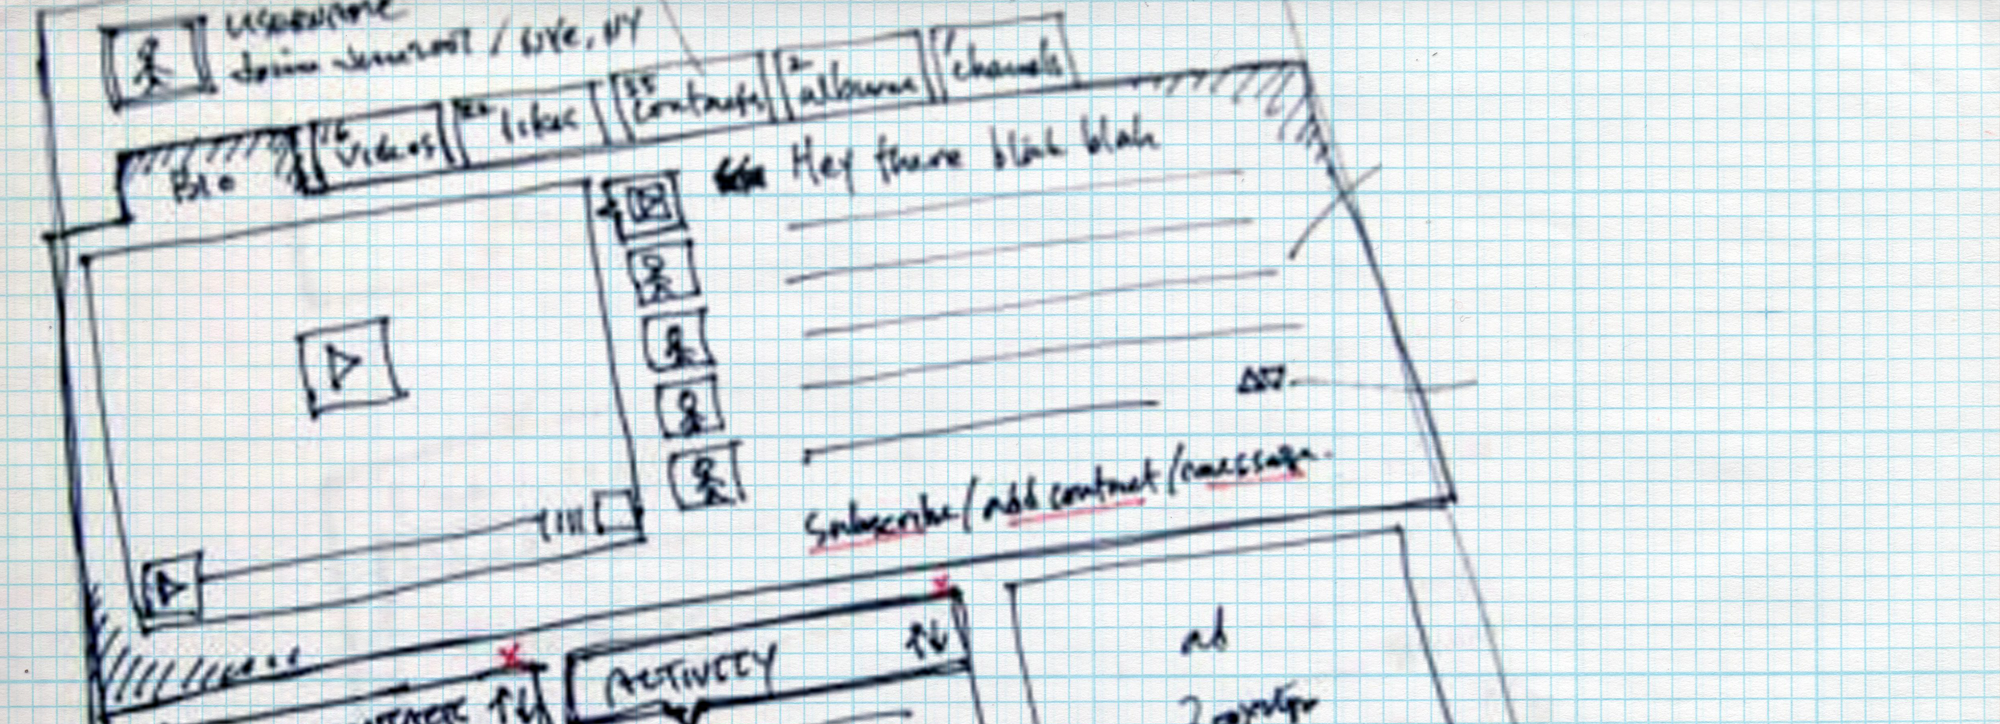 username
/ NYC, NY
Bio
16 videos
likes
55 contacts
2 albums
1 channels
Hey there blah blah
Subscribe / add contact / message
ACTIVITY
ad